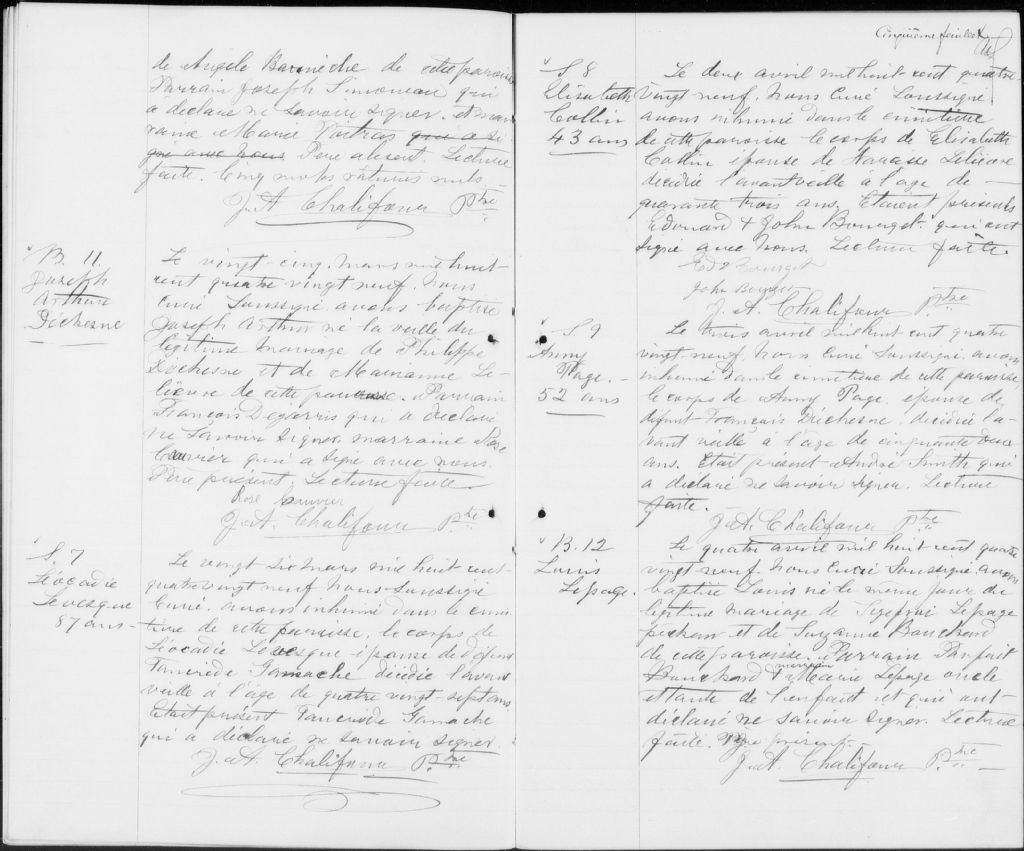 de Angele Barnèche de cette paroisse
Parrain Joseph Simoneau qui
a déclaré ne savoir signer. et mar
raine Marie Vautras qui a si
gné avec nous Père absent. Lecture
faite. Cinq mots râturés nuls
J. A. Chalifour Ptre
B. 11
Joseph
Arthur
Déchesne
Le vingt-cinq mars mil huit-
cent quatre vingt neuf. Nous
curé soussigné avons baptisé
Joseph Arthur né la veille du
légitime mariage de Philippe
Dechesne et de Marianne Le-
lièvre de cette paroisse. Parrain
François Degarris qui a déclaré
ne savoir signer marraine Rose
Couvrier qui a signé avec nous.
Père présent. Lecture faite
Rose Couvrier
J. A. Chalifour Ptre
S. 7
Léocadie
Levesque
87 ans
Le vingt six mars mil huit cent-
quatre vingt neuf nous soussigné
Curé avons inhumé dans le cime
tière de cette paroisse, le corps de
Léocadie Levesque épouse de défunt
Tancrède Gamache décédée l'avant
veille à l'âge de quatre vingt-sept ans
Etait présent Tancrède Gamache
qui a déclaré ne savoir signer
J. A. Chalifour Ptre
Cinquième feuillet
S 8
Elisabeth
Collin
43 ans
Le deux avril mil huit-cent quatre
vingt neuf. Nous Curé soussigné
avons inhumé dans le cimetière
de cette paroisse le corps de Elisabeth
Collin épouse de Narcisse Lelièvre
décédée l'avant veille à l'age de
quarante trois ans. Etaient présents
Edouard & John Bourget qui ont
signé avec nous. Lecture faite.
Ed Bourget
John Bourget
J. A. Chalifour Ptre
S 9
Anny
Page
52 ans
Le trois avril mil huit cent quatre
vingt neuf. Nous Curé soussigné avons
inhumé dans le cimetière de cette paroisse
le corps de Anny Page épouse de
défunt François Déchesne, décédée l'a-
vant veille à l'age de cinquante deux
ans. Etait présent André Smith qui
a déclaré ne savoir signer. Lecture
faite.
J. A. Chalifour Ptre
B. 12
Louis
Lepage
Le quatre avril mil huit cent quatre
vingt neuf. Nous Curé soussigné avons
baptisé Louis né le même jour du
légitime mariage de Sigefroi Lepage
pêcheur et de Suzanne Bouchard
de cette paroisse. Parrain Parfait
Bouchard & marraine Marie Lepage oncle
et tante de l'enfant et qui ont
déclaré ne savoir signer. Lecture
faite. Père présent.
J. A. Chalifour Ptre